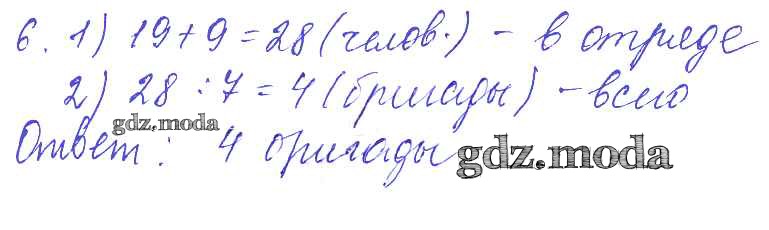 6. 1) 19+9=28 (челов.) - в отряде
2) 28:7=4 (бригады) - всего
gdz.moda
Ответ: 4 бригады
gdz.moda